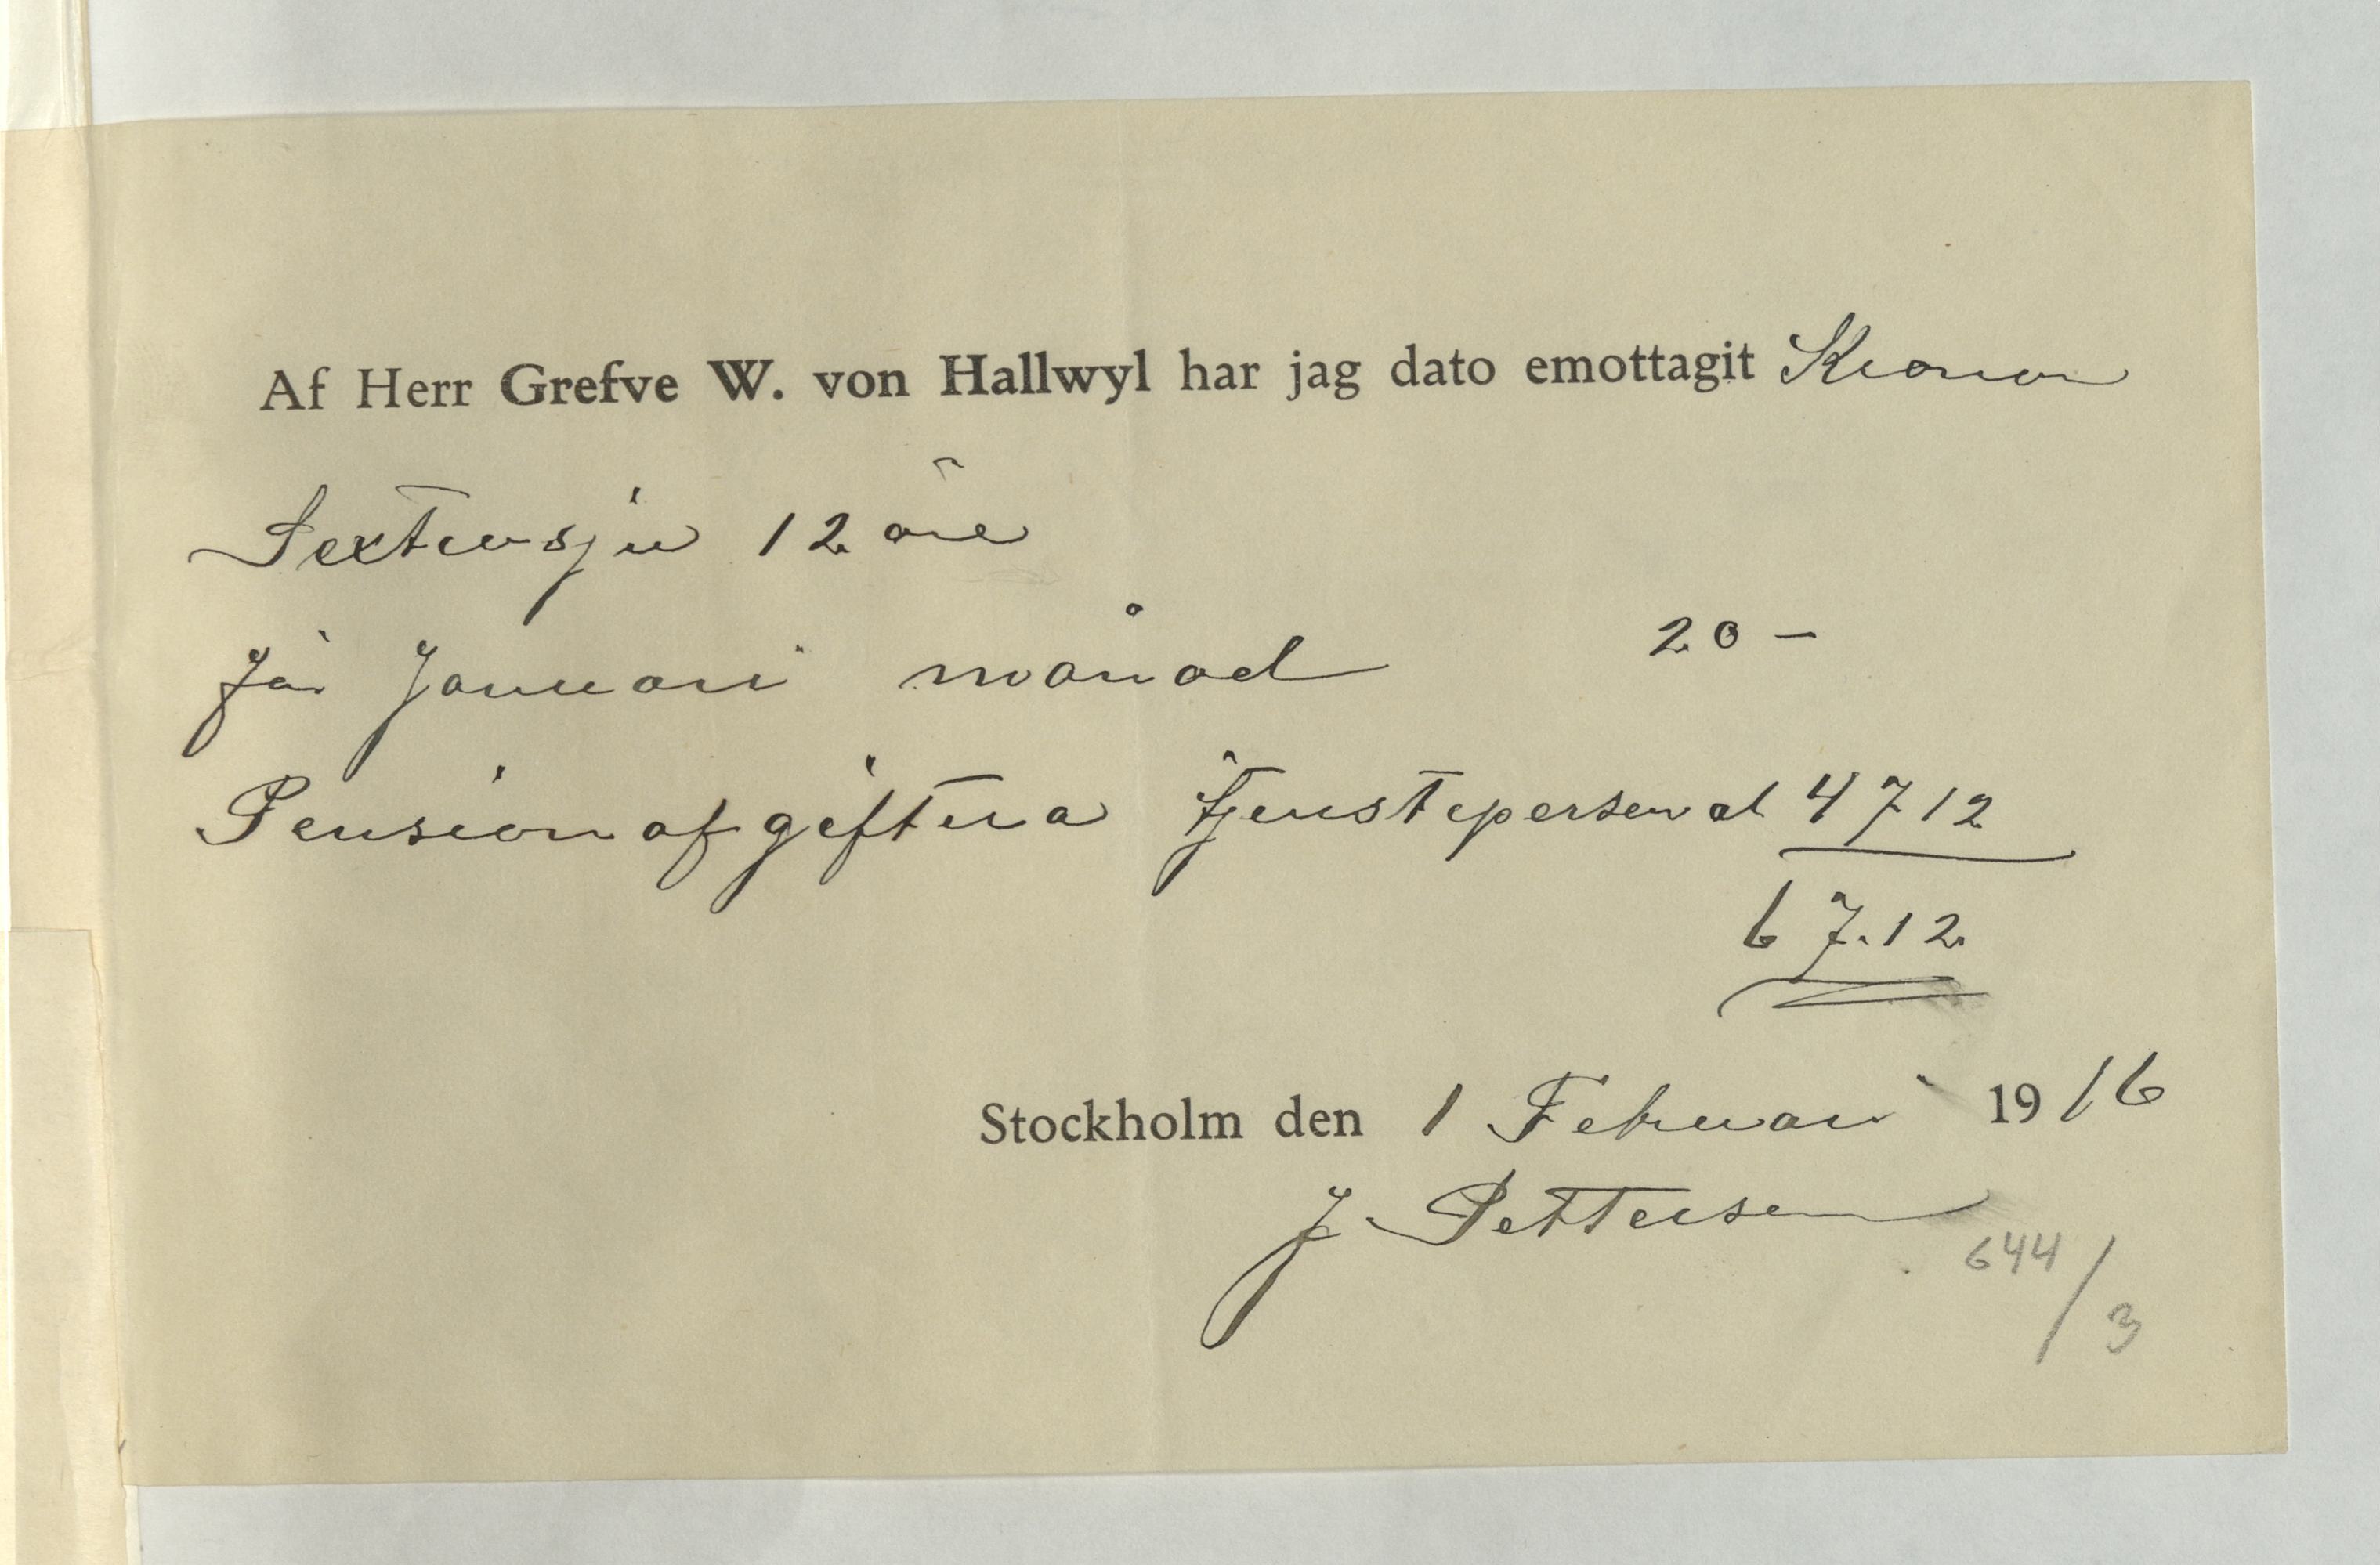 Af Herr Grefve W. von Hallwyl har jag dato emottagit Kronor
Sextiosju 12 öre
för Januari månad 20 –
Pensionafgifterna tjenstepersonal 47 12
67.12
Stockholm den 1 Februari 1916
J Pettersson
644/3